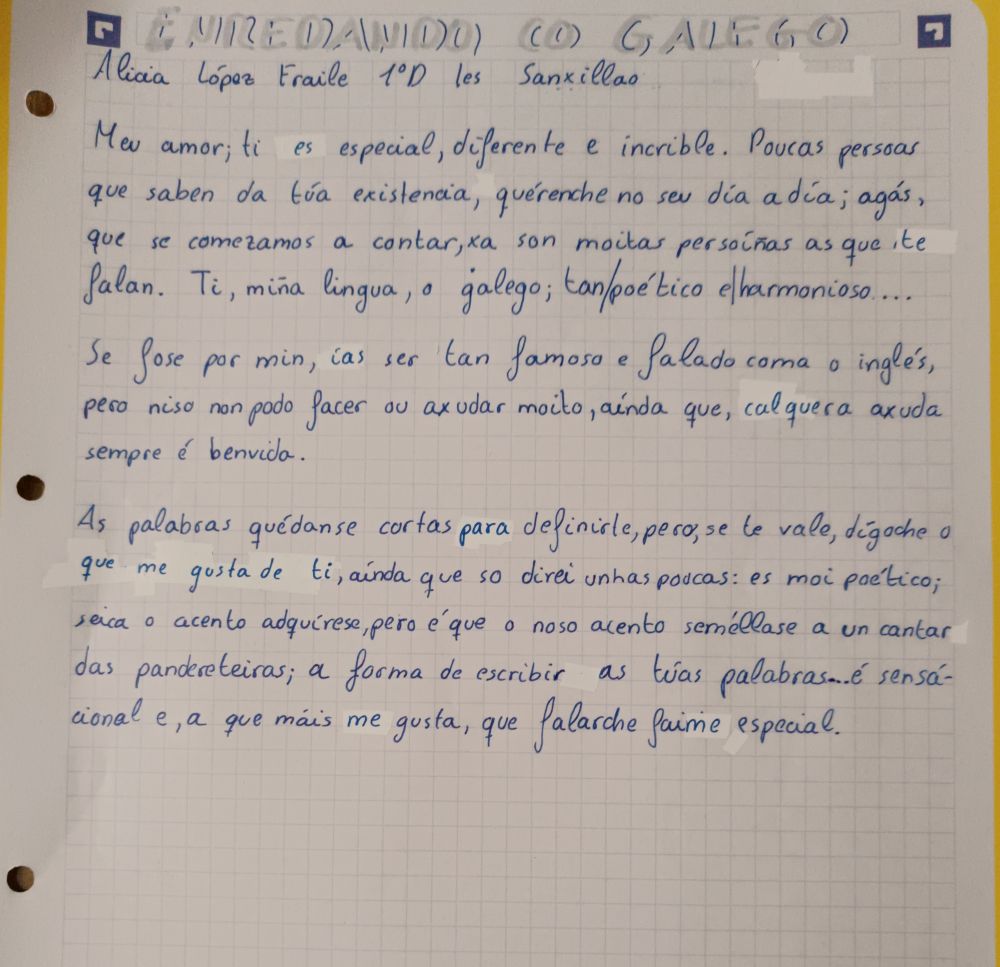 ENREDANDO CO GALEGO
Alicia López Fraile 1ºD Ies Sanxillao
Meu amor; ti es especial, diferente e incrible. Poucas persoas
que saben da túa existencia, quérenche no seu día a día; agás,
que se comezamos a contar, xa son moitas persoíñas as que te
falan. Ti, miña lingua, o galego; tan/poético e/harmonioso....
Se fose por min, ías ser tan famoso e falado coma o inglés,
pero niso non podo facer ou axudar moito, aínda que, calquera axuda
sempre é benvida.
As palabras quédanse cortas para definirte, pero, se te vale, dígoche o
que me gusta de ti, aínda que so direi unhas poucas: es moi poético;
seica o acento adquírese, pero é que o noso acento seméllase a un cantar
das pandereteiras; a forma de escribir as túas palabras...é sensá-
cional e, a que máis me gusta, que falarche faime especial.